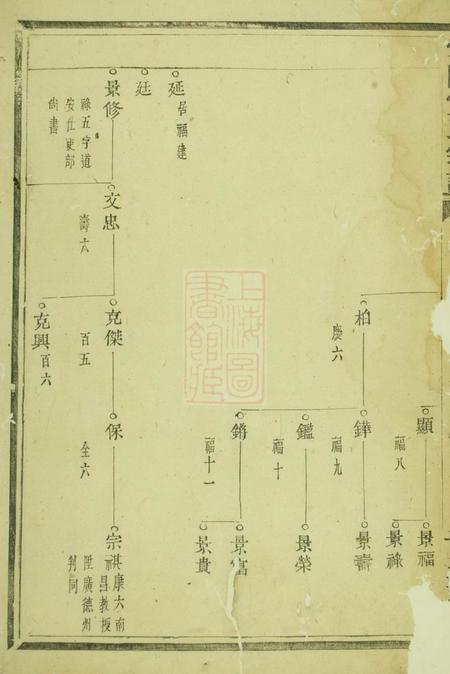 顯
福八
景福
景祿
柏
慶六
鏵
福九
景壽
鑑
福十
景榮
鏘
福十一
景富
景貴
延
居福建
廷
景修
祿五字道
安仕吏部
尚書
文忠
濤六
克傑
百五
克興
百六
保
全六
宗祺
康六南
昌教授
陞廣德州
判同
上海圖
書館藏